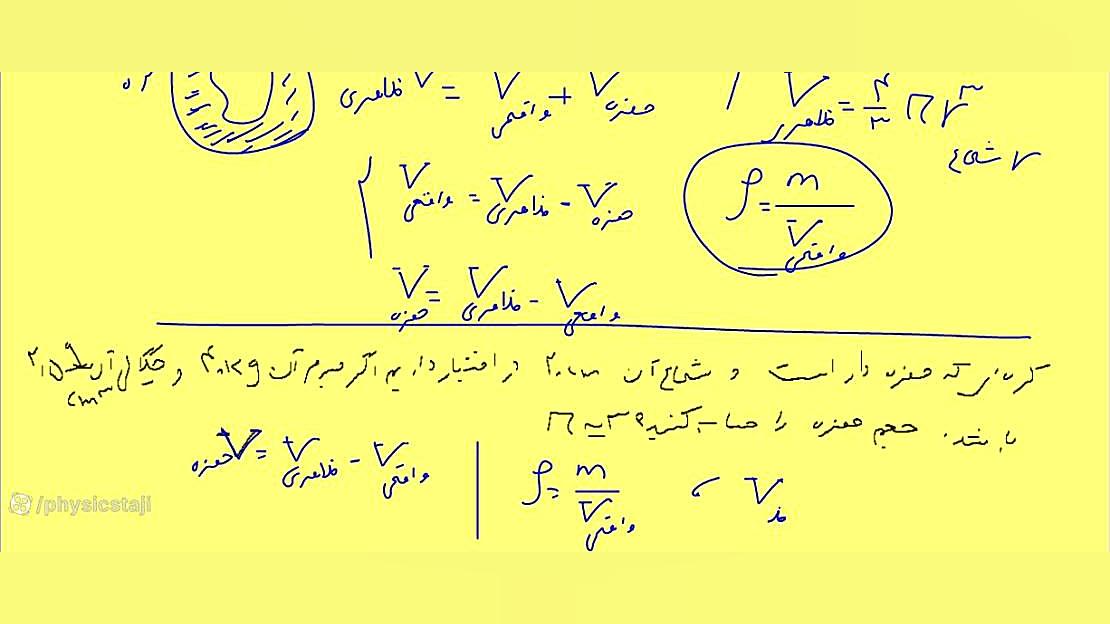 V ظاهری = V واقعی + V حفره / V ظاهری = ۴/۳ π r³
r شعاع
V واقعی = V ظاهری - V حفره
ρ = m / V واقعی
V حفره = V ظاهری - V واقعی
کره‌ای که حفره دار است و شعاع آن ۲۰cm در اختیار داریم اگر جرم آن ۴۰kg و چگالی آن ۲٫۵ g/cm³
باشد. حجم حفره را حساب کنید؟ π ≃ ۳
V حفره = V ظاهری - V واقعی
ρ = m / V واقعی ، V ظ
/physicstaji